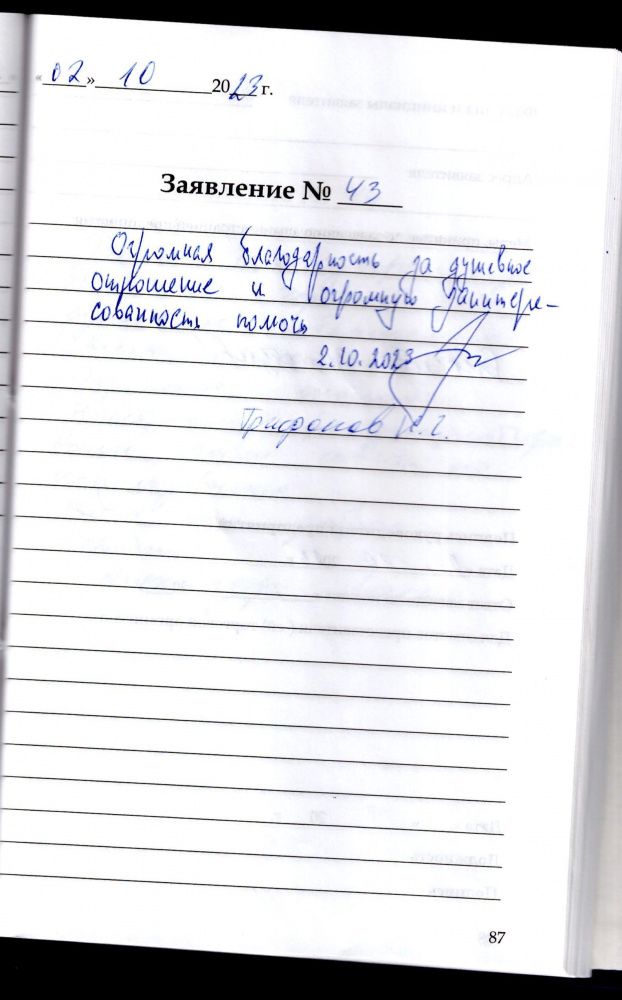 «02» 10 2023 г.
Заявление № 43
Огромная благодарность за душевное
отношение и огромную заинтере-
сованность помочь
2.10.2023
Трифонов
87